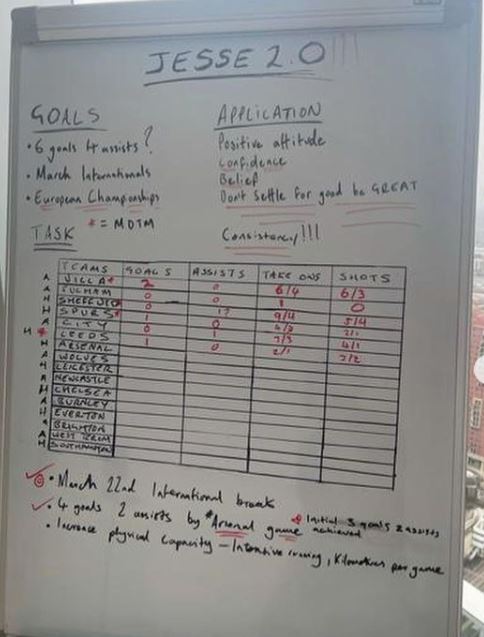 JESSE 2.0!!!
GOALS
• 6 goals 4 assists?
• March Internationals
• European Championships
* = MOTM
APPLICATION
Positive attitude
Confidence
Belief
Don't Settle for good be GREAT
Consistency!!!
TASK
TEAMS GOALS ASSISTS TAKE ONS SHOTS
A VILLA* 2 0 6/4 6/3
A FULHAM 0 0 1 0
H SHEFF UTD
H SPURS*
A CITY
H LEEDS
H ARSENAL
A WOLVES
H LEICESTER
A NEWCASTLE
H CHELSEA
A BURNLEY
H EVERTON
A BRIGHTON
A WEST BROM
H SOUTHAMPTON
• March 22nd International break
• 4 goals 2 assists by *Arsenal game achieved
Initial 3 goals 2 assists
• Increase physical Capacity – Intensive running, Kilometres per game